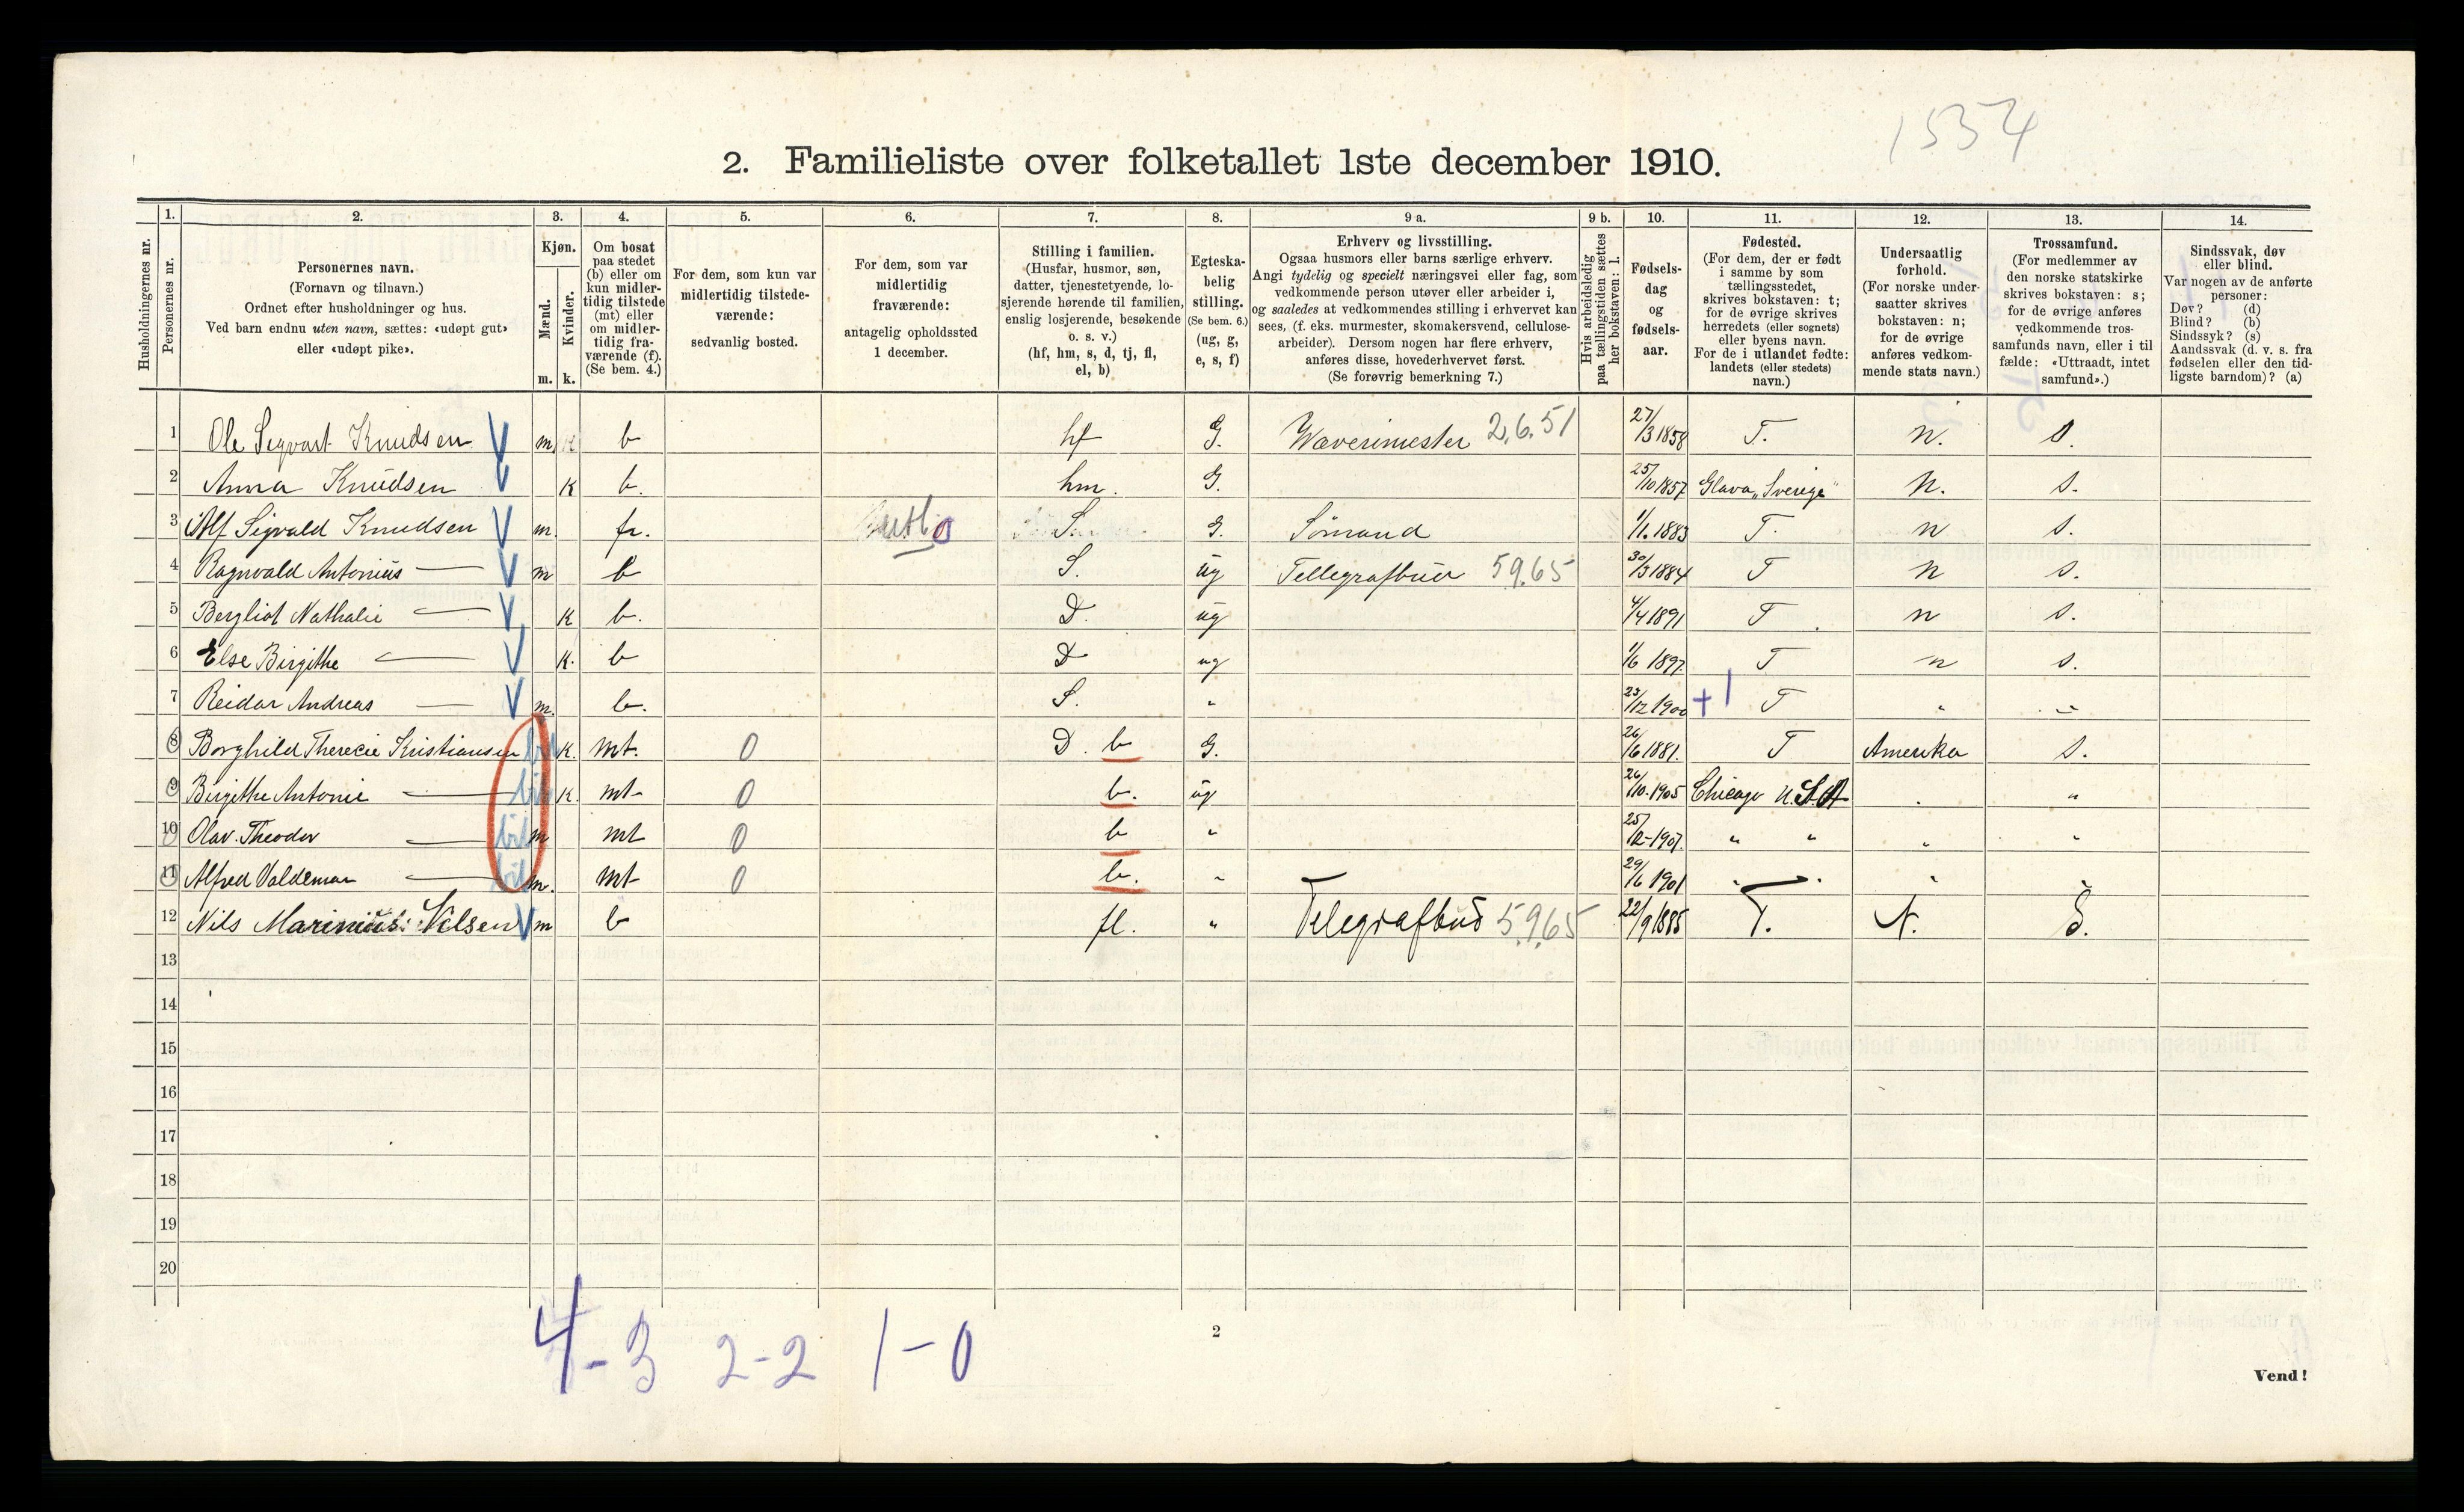 1534
2. Familieliste over folketallet 1ste december 1910.
Husholdningernes nr.
1. Personernes nr.
2. Personernes navn. (Fornavn og tilnavn.) Ordnet efter husholdninger og hus. Ved barn endnu uten navn, sættes: «udøpt gut» eller «udøpt pike».
3. Kjøn. Mænd. m. Kvinder. k.
4. Om bosat paa stedet (b) eller om kun midlertidig tilstede (mt) eller om midlertidig fraværende (f). (Se bem. 4.)
5. For dem, som kun var midlertidig tilstedeværende: sedvanlig bosted.
6. For dem, som var midlertidig fraværende: antagelig opholdssted 1 december.
7. Stilling i familien. (Husfar, husmor, søn, datter, tjenestetyende, losjerende hørende til familien, enslig losjerende, besøkende o. s. v.) (hf, hm, s, d, tj, fl, el, b)
8. Egteskabelig stilling. (Se bem. 6.) (ug, g, e, s, f)
9 a. Erhverv og livsstilling. Ogsaa husmors eller barns særlige erhverv. Angi tydelig og specielt næringsvei eller fag, som vedkommende person utøver eller arbeider i, og saaledes at vedkommendes stilling i erhvervet kan sees, (f. eks. murmester, skomakersvend, cellulose-arbeider). Dersom nogen har flere erhverv, anføres disse, hovederhvervet først. (Se forøvrig bemerkning 7.)
9 b. Hvis arbeidsledig paa tællingstiden sættes her bokstaven: l.
10. Fødselsdag og fødselsaar.
11. Fødested. (For dem, der er født i samme by som tællingsstedet, skrives bokstaven: t; for de øvrige skrives herredets (eller sognets) eller byens navn. For de i utlandet fødte: landets (eller stedets) navn.)
12. Undersaatlig forhold. (For norske undersaatter skrives bokstaven: n; for de øvrige anføres vedkommende stats navn.)
13. Trossamfund. (For medlemmer av den norske statskirke skrives bokstaven: s; for de øvrige anføres vedkommende trossamfunds navn, eller i tilfælde: «Uttraadt, intet samfund».)
14. Sindssvak, døv eller blind. Var nogen av de anførte personer: Døv? (d) Blind? (b) Sindssyk? (s) Aandssvak (d. v. s. fra fødselen eller den tidligste barndom)? (a)
1 Ole Sigvart Knudsen V m b hf G. 2.6.51 27/3 1858 T. n. s.
2 Anna Knudsen V K b. hm. G. 25/10 1857 Glava „Sverige" n. s.
3 Alf Sigvald Knudsen V m. fr. S. G. Sömand 1/1.1883 T. n s.
4 Ragnvald Antonius — V m b S. ug Tellegrafbud 5965 30/3 1884 T n s.
5 Bergliot Nathalie — V K b. D. ug 4/4 1891 T n s.
6 Else Birgithe — V K. b D ug 1/6 1897. T n s.
7 Reidar Andreas — V m. b. S. " 23/12 1900 +1 T " "
8 Borghild Therecie Kristiansen K. mt. 0 D. b G. 26/6 1881. T Amerika s.
9 Birgithe Antonie — K. mt 0 b. ug 26/10-1905 Chicago U.S.A " "
10 Olav. Theodor — m mt 0 b " 25/12-1907. " " " "
11 Alfred Valdemar — m. mt 0 b. " 29/6 1901 " " " "
12 Nils Marinius Nilsen V m b fl. " Telegrafbud 5965 22/9 1885 T. N. S.
13
14
15
16
17
18
19
20
4-3 2-2 1-0
2
Vend!